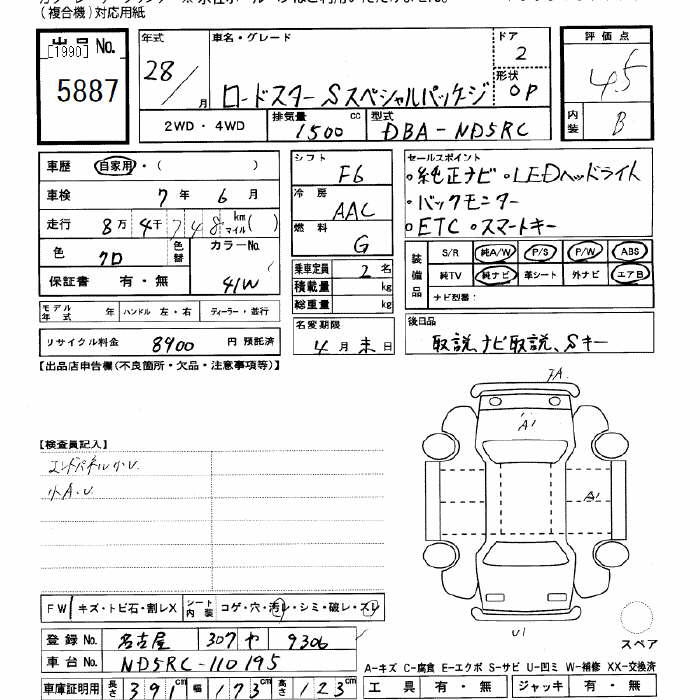 (複合機)対応用紙
出品 No.
[1990]
5887
年式
28/ 月
車名・グレード
ロードスター Sスペシャルパッケージ
ドア 2
形状 OP
評価点
4.5
内装 B
2WD・4WD
排気量 1500 cc
型式 DBA-ND5RC
車歴 自家用・( )
車検 7年 6月
走行 8万 4千 748 km マイル( )
色 クロ 色替 カラーNo. 41W
保証書 有・無
シフト F6
冷房 AAC
燃料 G
乗車定員 2 名
積載量 kg
総重量 kg
名変期限 4月末日
セールスポイント
・純正ナビ ・LEDヘッドライト
・バックモニター
・ETC ・スマートキー
装備品 S/R 純A/W P/S P/W ABS
純TV 純ナビ 革シート 外ナビ エアB
ナビ型番:
モデル年式 年 ハンドル 左・右 ディーラー・並行
リサイクル料金 8900 円 預託済
後日品
取説、ナビ取説、Sキー
【出品店申告欄(不良箇所・欠品・注意事項等)】
【検査員記入】
エンドパネル小U.
小A.U.
A1
A1
U1
スペア
FW キズ・トビ石・割レX シート内装 コゲ・穴・汚レ・シミ・破レ・スレ
登録 No. 名古屋 307 や 9306
車台 No. ND5RC-110195
車庫証明用 長さ 391cm 幅 173cm 高さ 123cm
A-キズ C-腐食 E-エクボ S-サビ U-凹ミ W-補修 XX-交換済
工具 有・無 ジャッキ 有・無